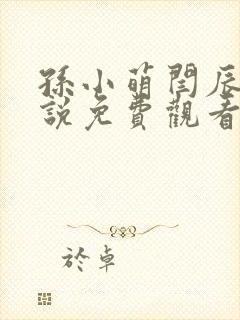 孫小萌閆辰
說免費觀看
於卓